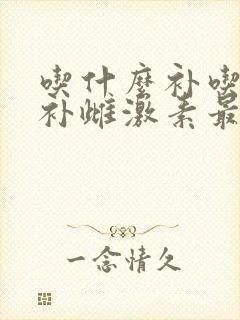 喫什麼补喫
补雌激素最
一念情久